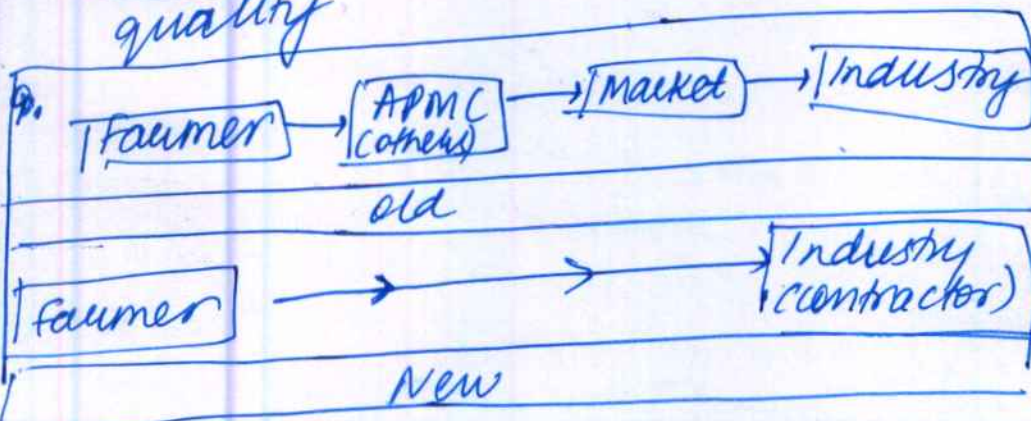 quality
Farmer → APMC (others) → Market → Industry
old
farmer → → Industry (contractor)
New